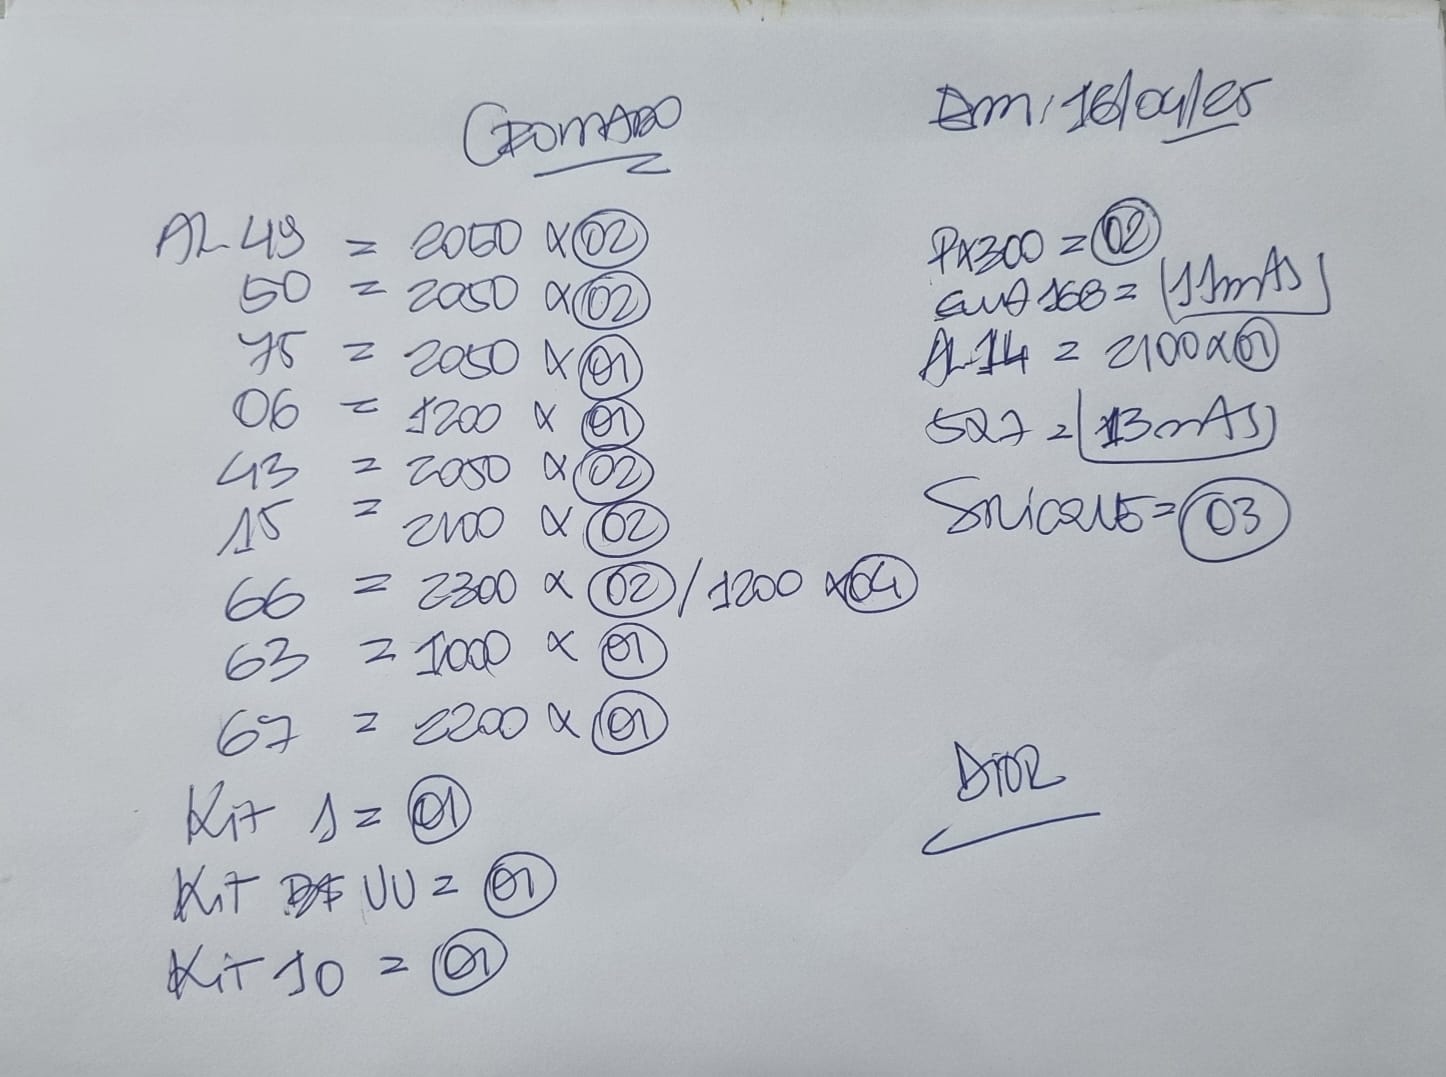 CROMADO
Em: 16/04/25
AL 49 = 2050 x 02
50 = 2050 x 02
75 = 2050 x 01
06 = 1200 x 01
43 = 2050 x 02
15 = 2100 x 02
66 = 2300 x 02 / 1200 x 04
63 = 1000 x 01
67 = 2200 x 01
Kit 1 = 01
Kit VV = 01
Kit 10 = 01
PX300 = 02
168 = 11mts
AL 14 = 2100 x 01
527 = 13mts
= 03